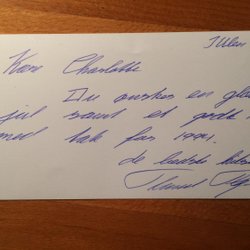 Julen
Kære Charlotte
Du ønskes en glæ
jul samt et godt
med tak for 1991.
de bedste